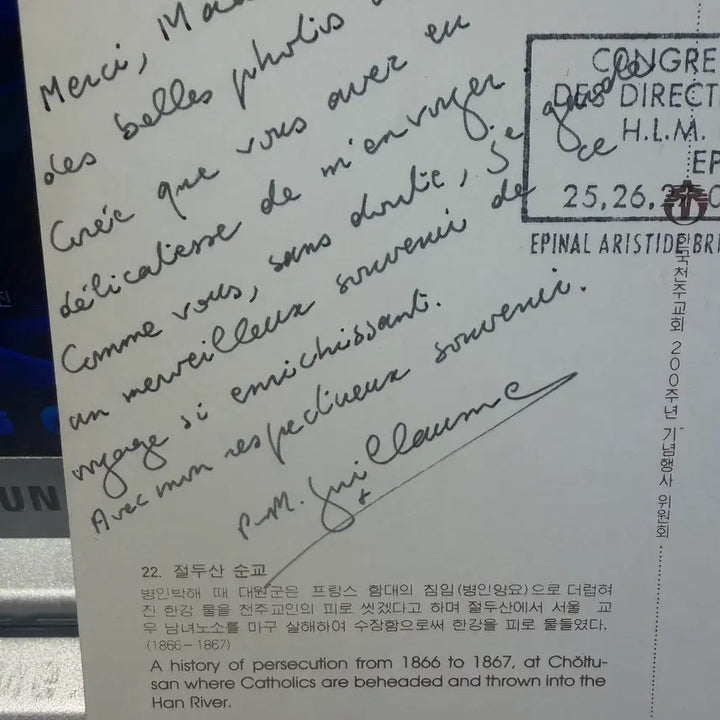 Merci, Mada
des belles photos
Corée que vous avez eu
délicatesse de m'envoyer
Comme vous, sans doute, je garde
un merveilleux souvenir de ce
voyage si enrichissant.
Avec mon respectueux souvenir.
P.M. Guillaume
CONGRE
DES DIRECT
H.L.M.
EP
25,26,
EPINAL ARISTIDE BRI
한국천주교회 200주년 기념행사 위원회
22. 절두산 순교
병인박해 때 대원군은 프랑스 함대의 침입(병인양요)으로 더럽혀
진 한강 물을 천주교인의 피로 씻겠다고 하며 절두산에서 서울 교
우 남녀노소를 마구 살해하여 수장함으로써 한강을 피로 물들였다.
(1866-1867)
A history of persecution from 1866 to 1867, at Chŏltu-
san where Catholics are beheaded and thrown into the
Han River.